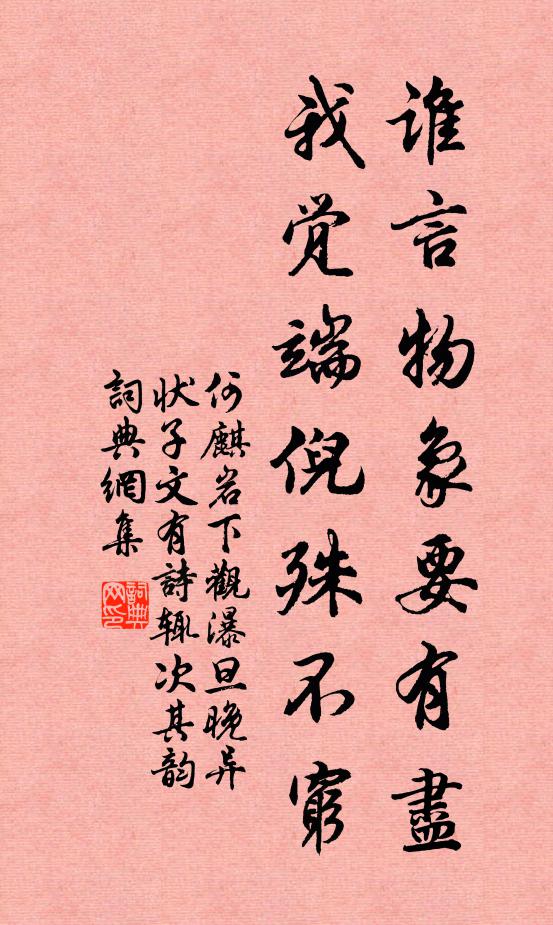 谁言物象要有盡
我觉端倪殊不窮
何麒岩下觀瀑旦晚异
状子文有詩辄次其韵
詞典網集
詞典网印